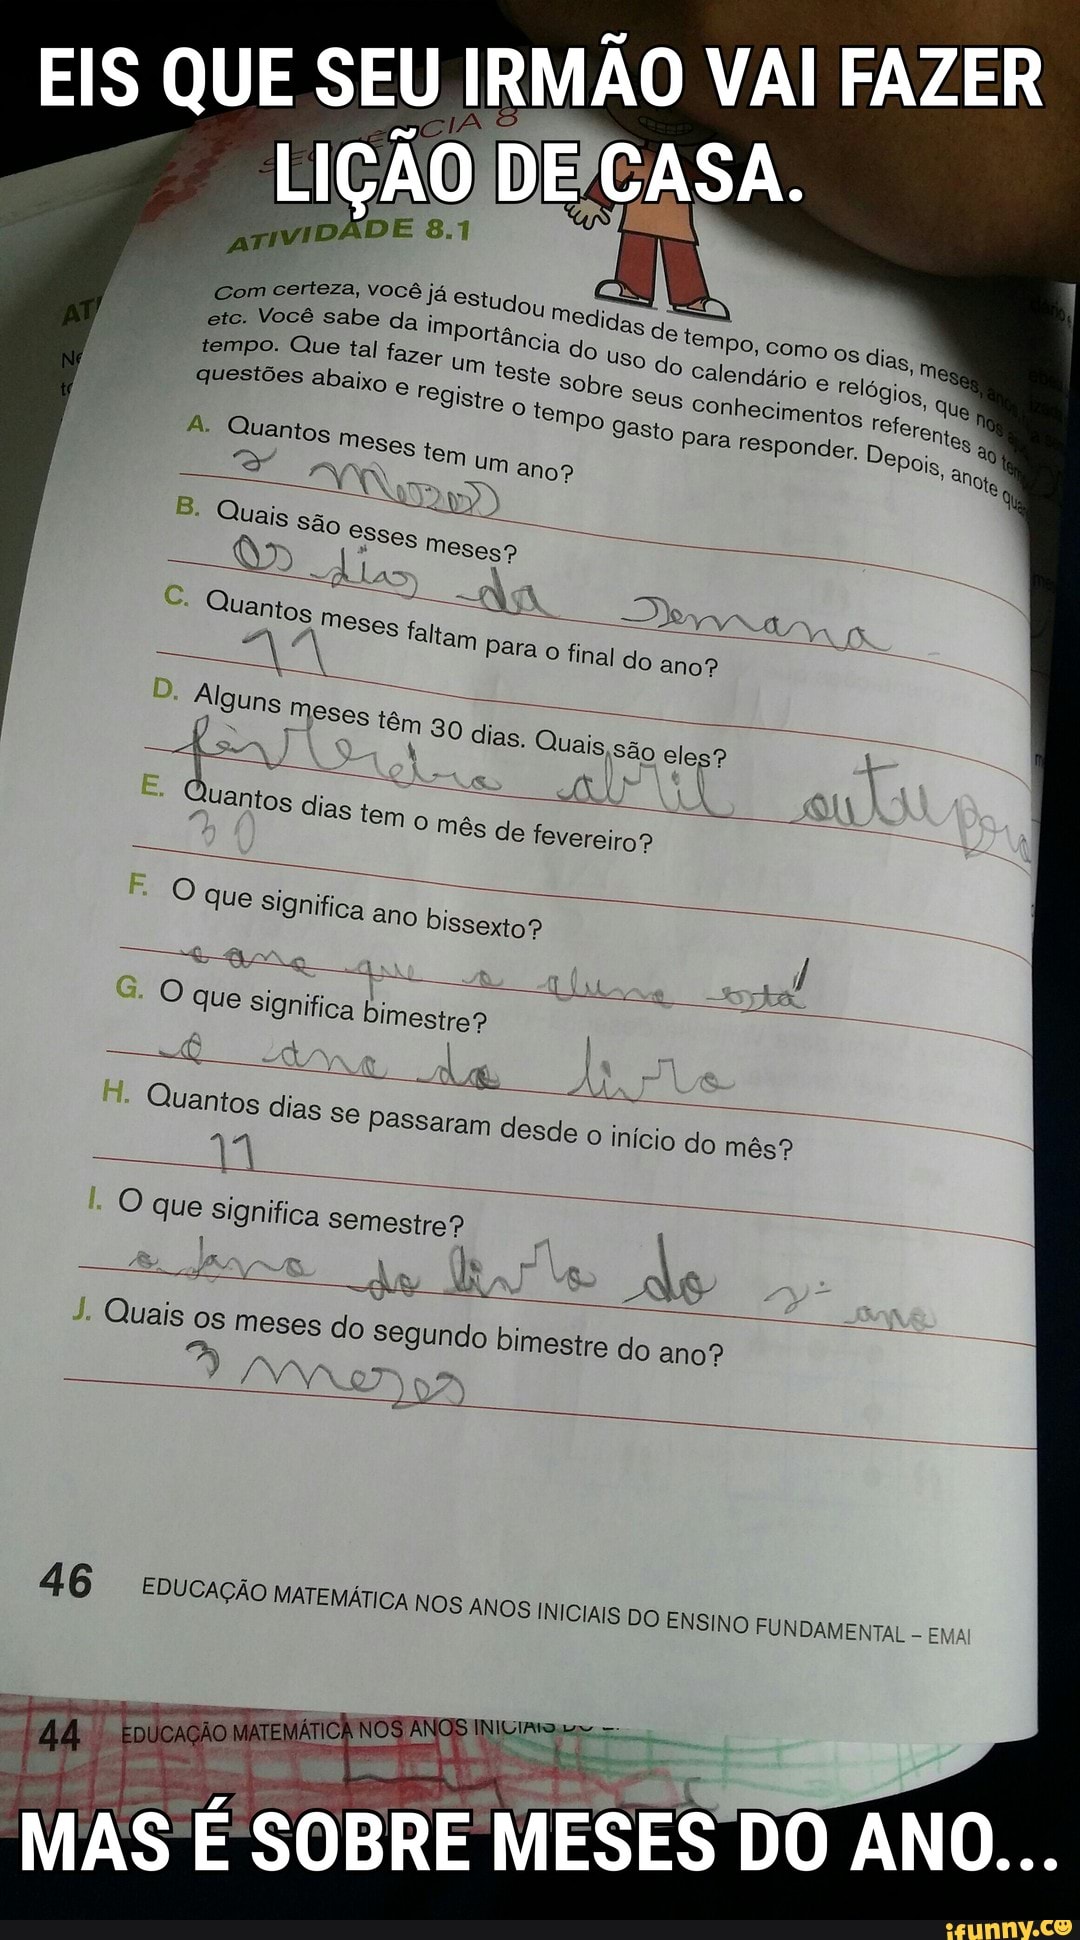 EIS QUE SEU IRMÃO VAI FAZER
LIÇÃO DE CASA.
ATIVIDADE 8.1
Com certeza, você já estudou medidas de tempo, como os dias, meses, anos
etc. Você sabe da importância do uso do calendário e relógios, que nos
tempo. Que tal fazer um teste sobre seus conhecimentos referentes ao
questões abaixo e registre o tempo gasto para responder. Depois, anote
A. Quantos meses tem um ano?
2 mezes
B. Quais são esses meses?
os dias da semana
C. Quantos meses faltam para o final do ano?
11
D. Alguns meses têm 30 dias. Quais são eles?
abril
E. Quantos dias tem o mês de fevereiro?
30
F. O que significa ano bissexto?
o ano que o aluno está
G. O que significa bimestre?
o ano do livro
H. Quantos dias se passaram desde o início do mês?
11
I. O que significa semestre?
do livro do 2º ano
J. Quais os meses do segundo bimestre do ano?
3 mezes
46 EDUCAÇÃO MATEMÁTICA NOS ANOS INICIAIS DO ENSINO FUNDAMENTAL – EMAI
44 EDUCAÇÃO MATEMÁTICA NOS ANOS INICIAIS
MAS É SOBRE MESES DO ANO...
ifunny.co